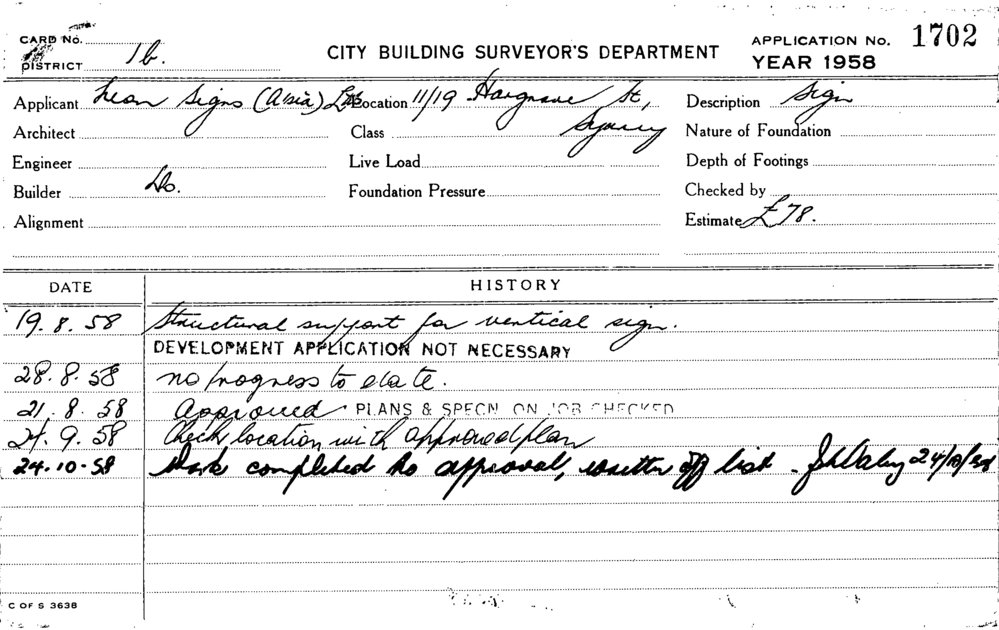 CARD No.
DISTRICT 1b.
CITY BUILDING SURVEYOR'S DEPARTMENT
APPLICATION No. 1702
YEAR 1958
Applicant Neon Signs (A'sia) Ltd Location 11/19 Hargrave St, Description Sign
Architect Class Sydney Nature of Foundation
Engineer Live Load Depth of Footings
Builder Do. Foundation Pressure Checked by
Alignment Estimate £78.
DATE HISTORY
19.8.58 Structural support for vertical sign.
DEVELOPMENT APPLICATION NOT NECESSARY
28.8.58 no progress to date.
21.8.58 Approved PLANS & SPECN ON JOB CHECKED
24.9.58 Check location with approved plan
24.10.58 Work completed to approval, written off list - 24/10/58
C OF S 3638